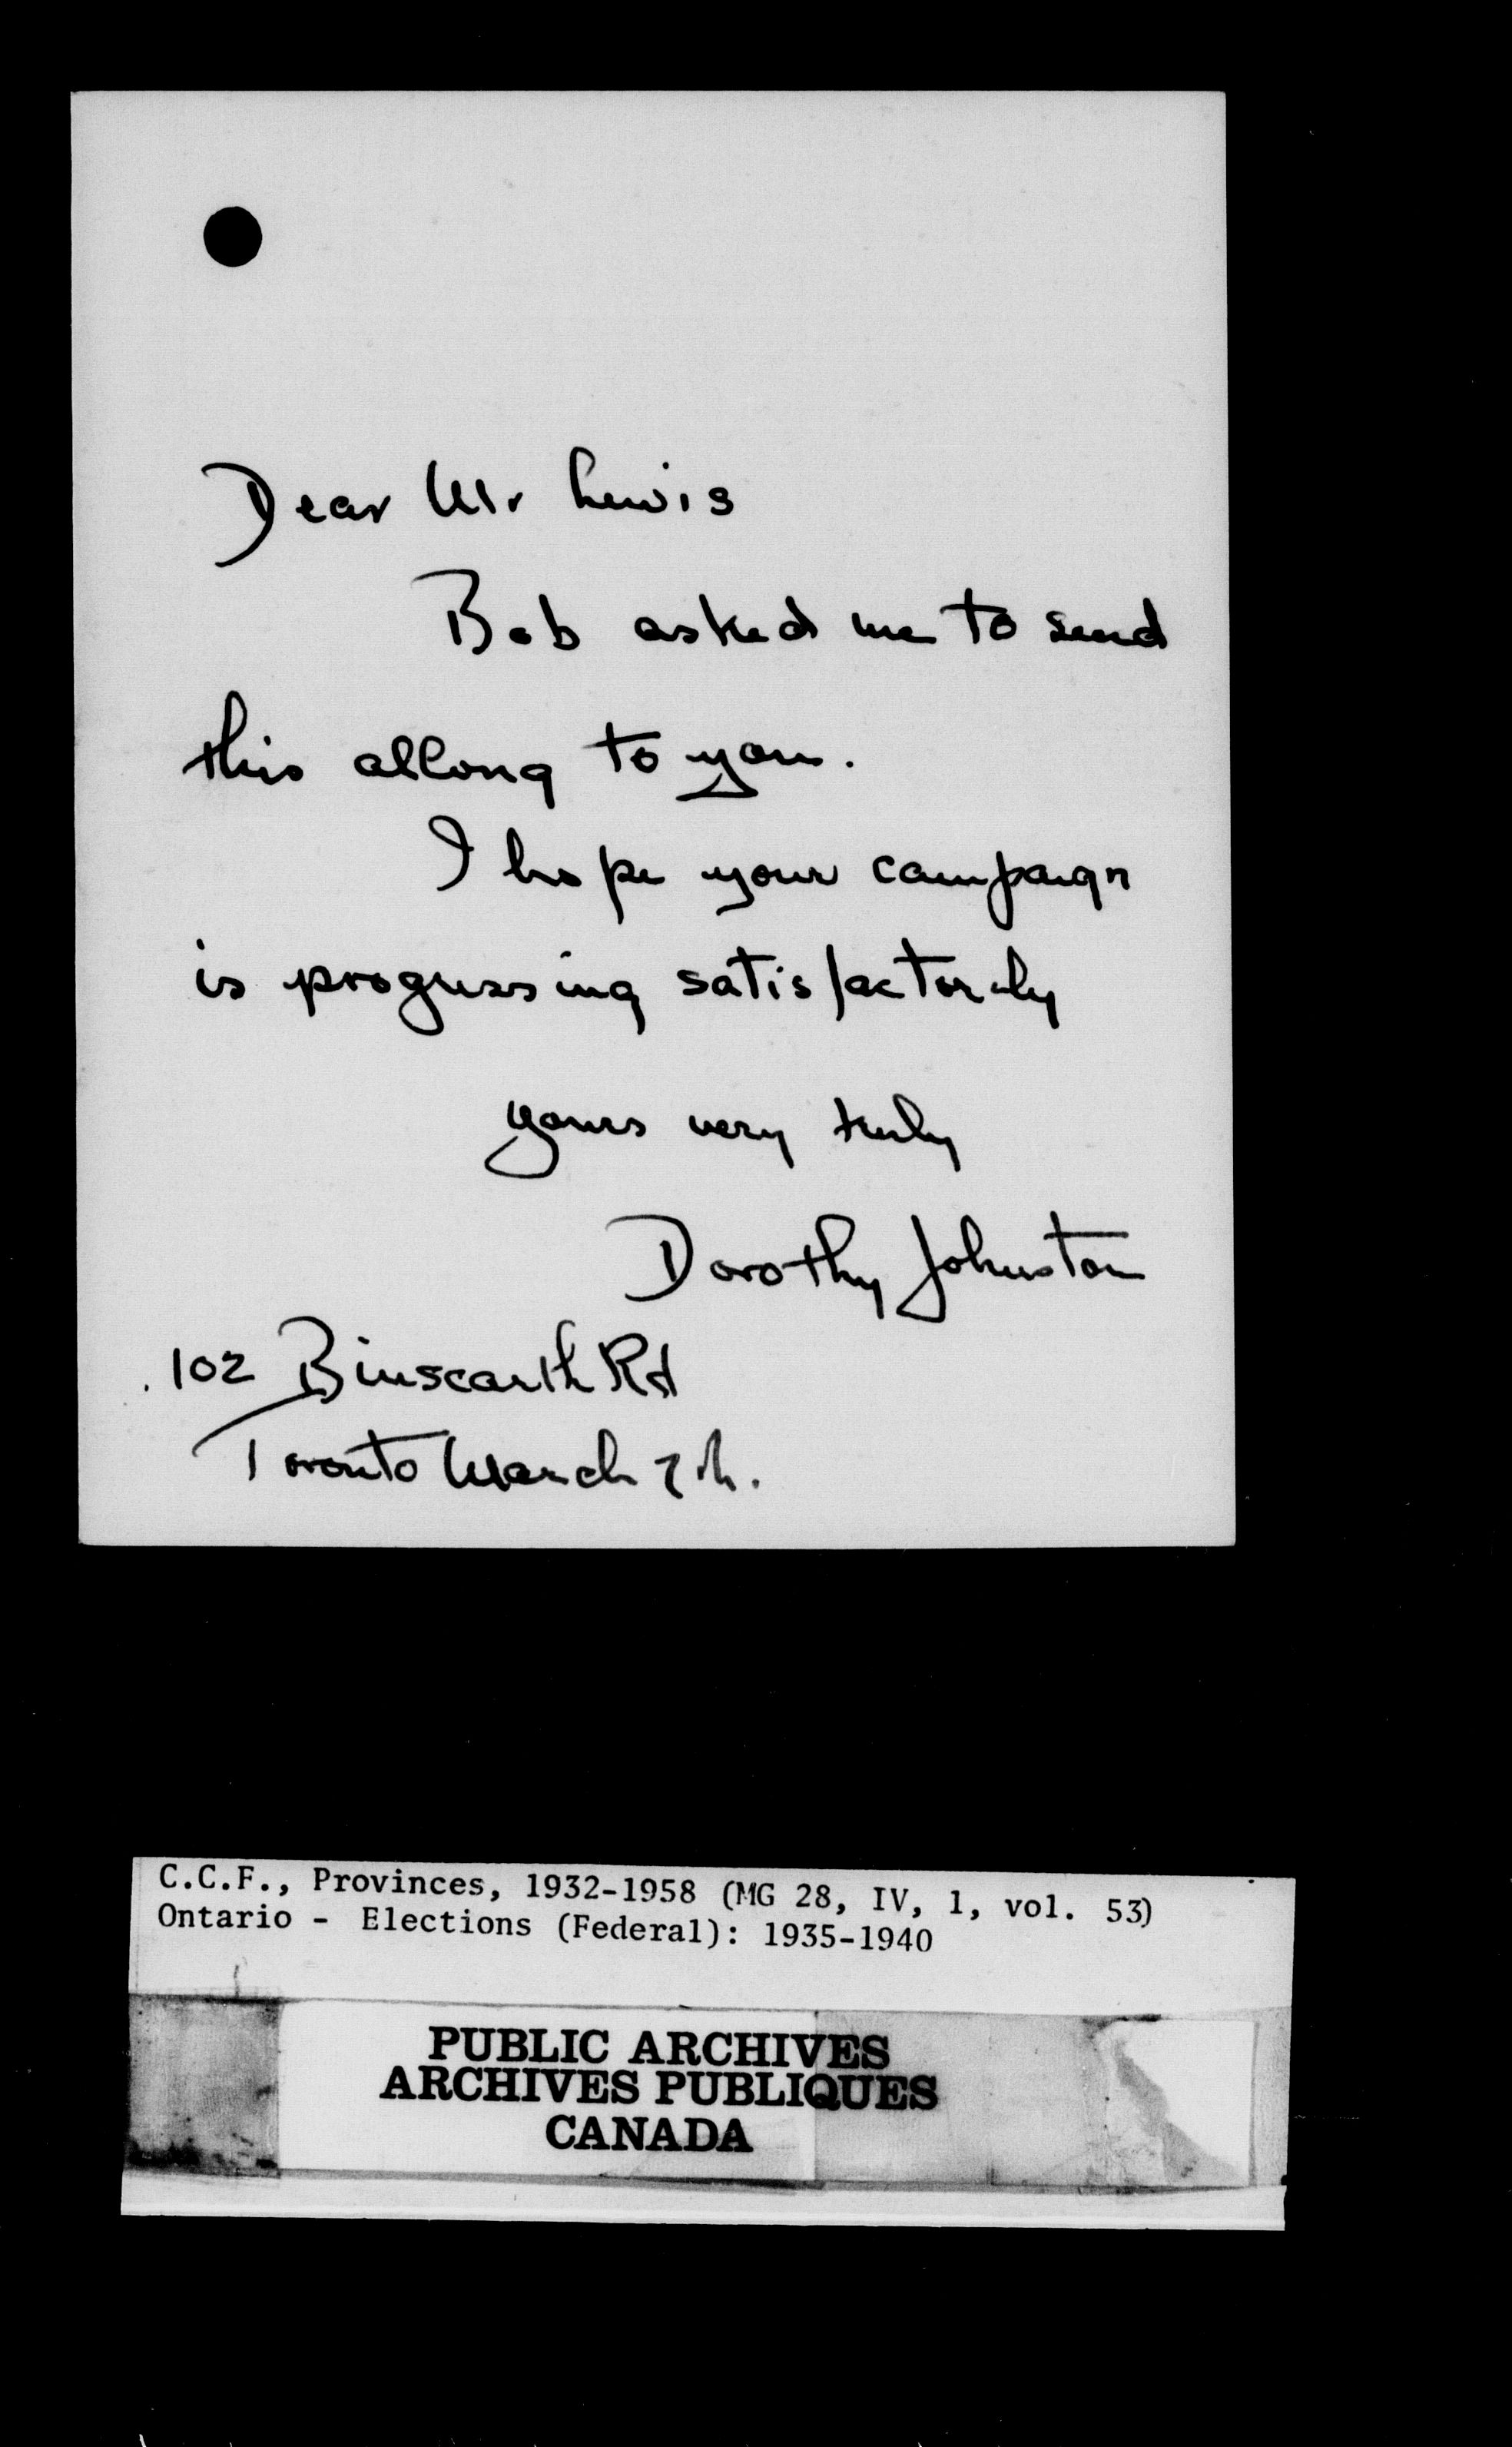 Dear Mr Lewis
Bob asked me to send
this allong to you.
I hope your campaign
is progressing satisfactorily
yours very truly
Dorothy Johnston
102 Binscarth Rd
Toronto March 7th.
C.C.F., Provinces, 1932-1958 (MG 28, IV, 1, vol. 53)
Ontario - Elections (Federal): 1935-1940
PUBLIC ARCHIVES
ARCHIVES PUBLIQUES
CANADA